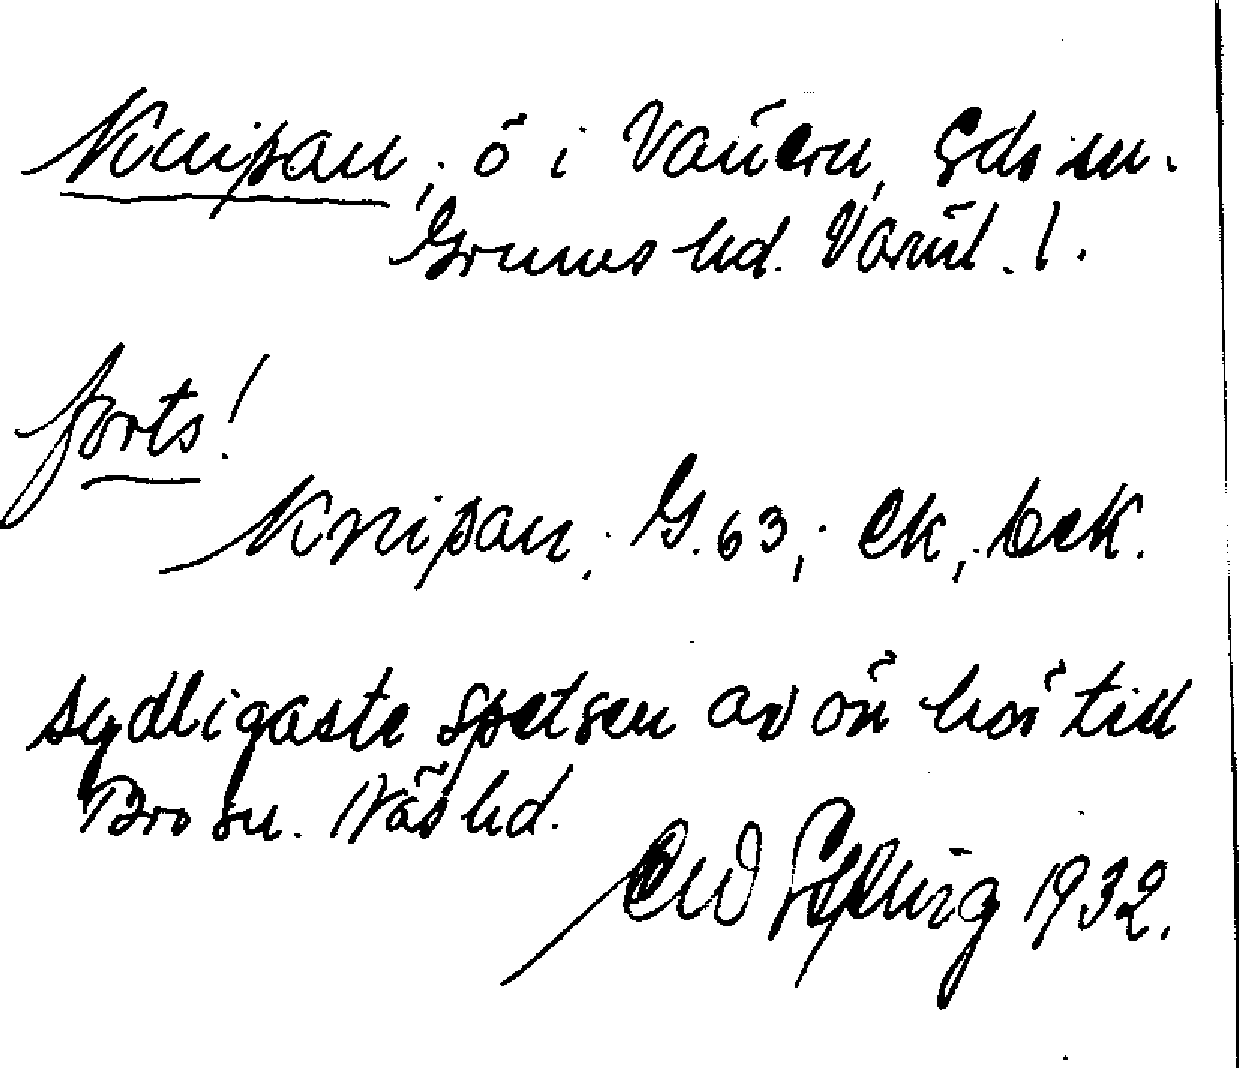 Knipan, ö i Vänern, Eds sn.
Grums hd. Värml. l.
forts!
Knipan, G. 63, ek, bek.
sydligaste spetsen av ön hör till
Bro sn. Näs hd.
1932.